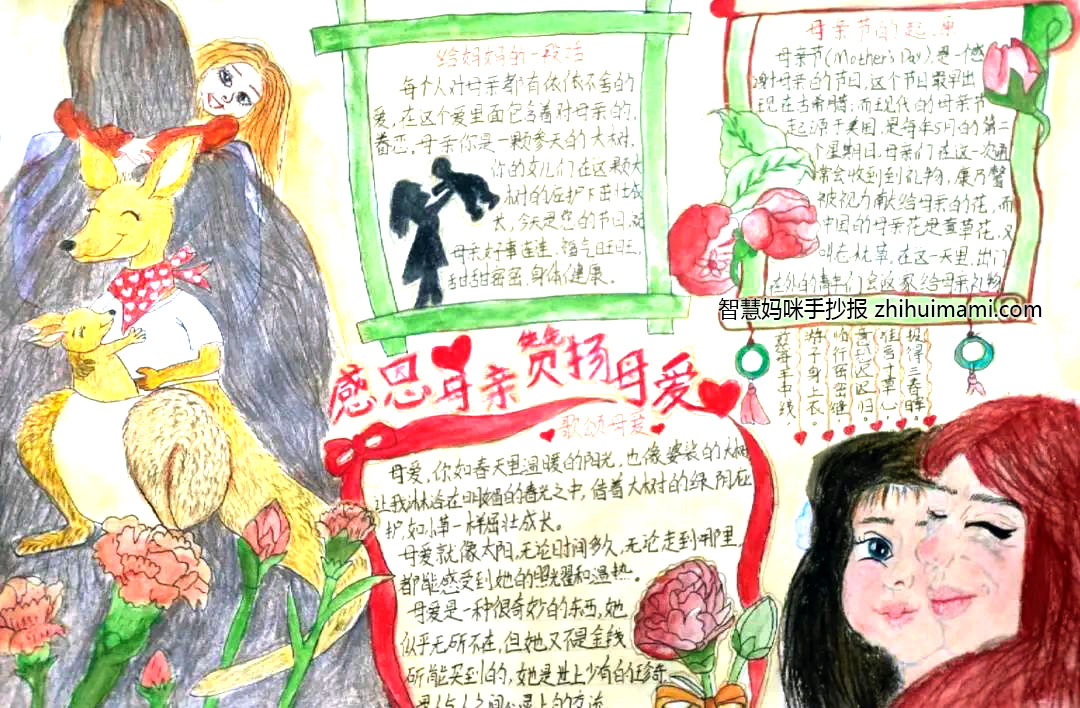 给妈妈的一段话
每个人对母亲都有依依不舍的
爱,在这个爱里面包含着对母亲的
眷恋,母亲你是一颗参天的大树,
你的女儿们在这颗大
树的庇护下茁壮成
长,今天是您的节日,祝
母亲好事连连,福气旺旺,
甜甜蜜蜜,身体健康。
母亲节的起源
母亲节(Mother's Day),是一个感
谢母亲的节日,这个节日最早出
现在古希腊;而现代的母亲节
起源于美国,是每年5月的第二
个星期日,母亲们在这一次通
常会收到到礼物,康乃馨
被视为献给母亲的花,而
中国的母亲花是萱草花,又
叫忘忧草,在这一天里,出门
在外的青年们会回家给母亲礼物
智慧妈咪手抄报 zhihuimami.com
慈母手中线,
游子身上衣。
临行密密缝,
意恐迟迟归。
谁言寸草心,
报得三春晖。
感恩母亲 赞扬母爱
歌颂母爱
母爱,你如春天里温暖的阳光,也像婆娑的大树
让我沐浴在明媚的春光之中,借着大树的绿阴庇
护,如小草一样茁壮成长。
母爱就像太阳,无论时间多久,无论走到哪里,
都能感受到她的照耀和温热。
母爱是一种很奇妙的东西,她
似乎无所不在,但她又不是金钱
所能买到的,她是世上少有的